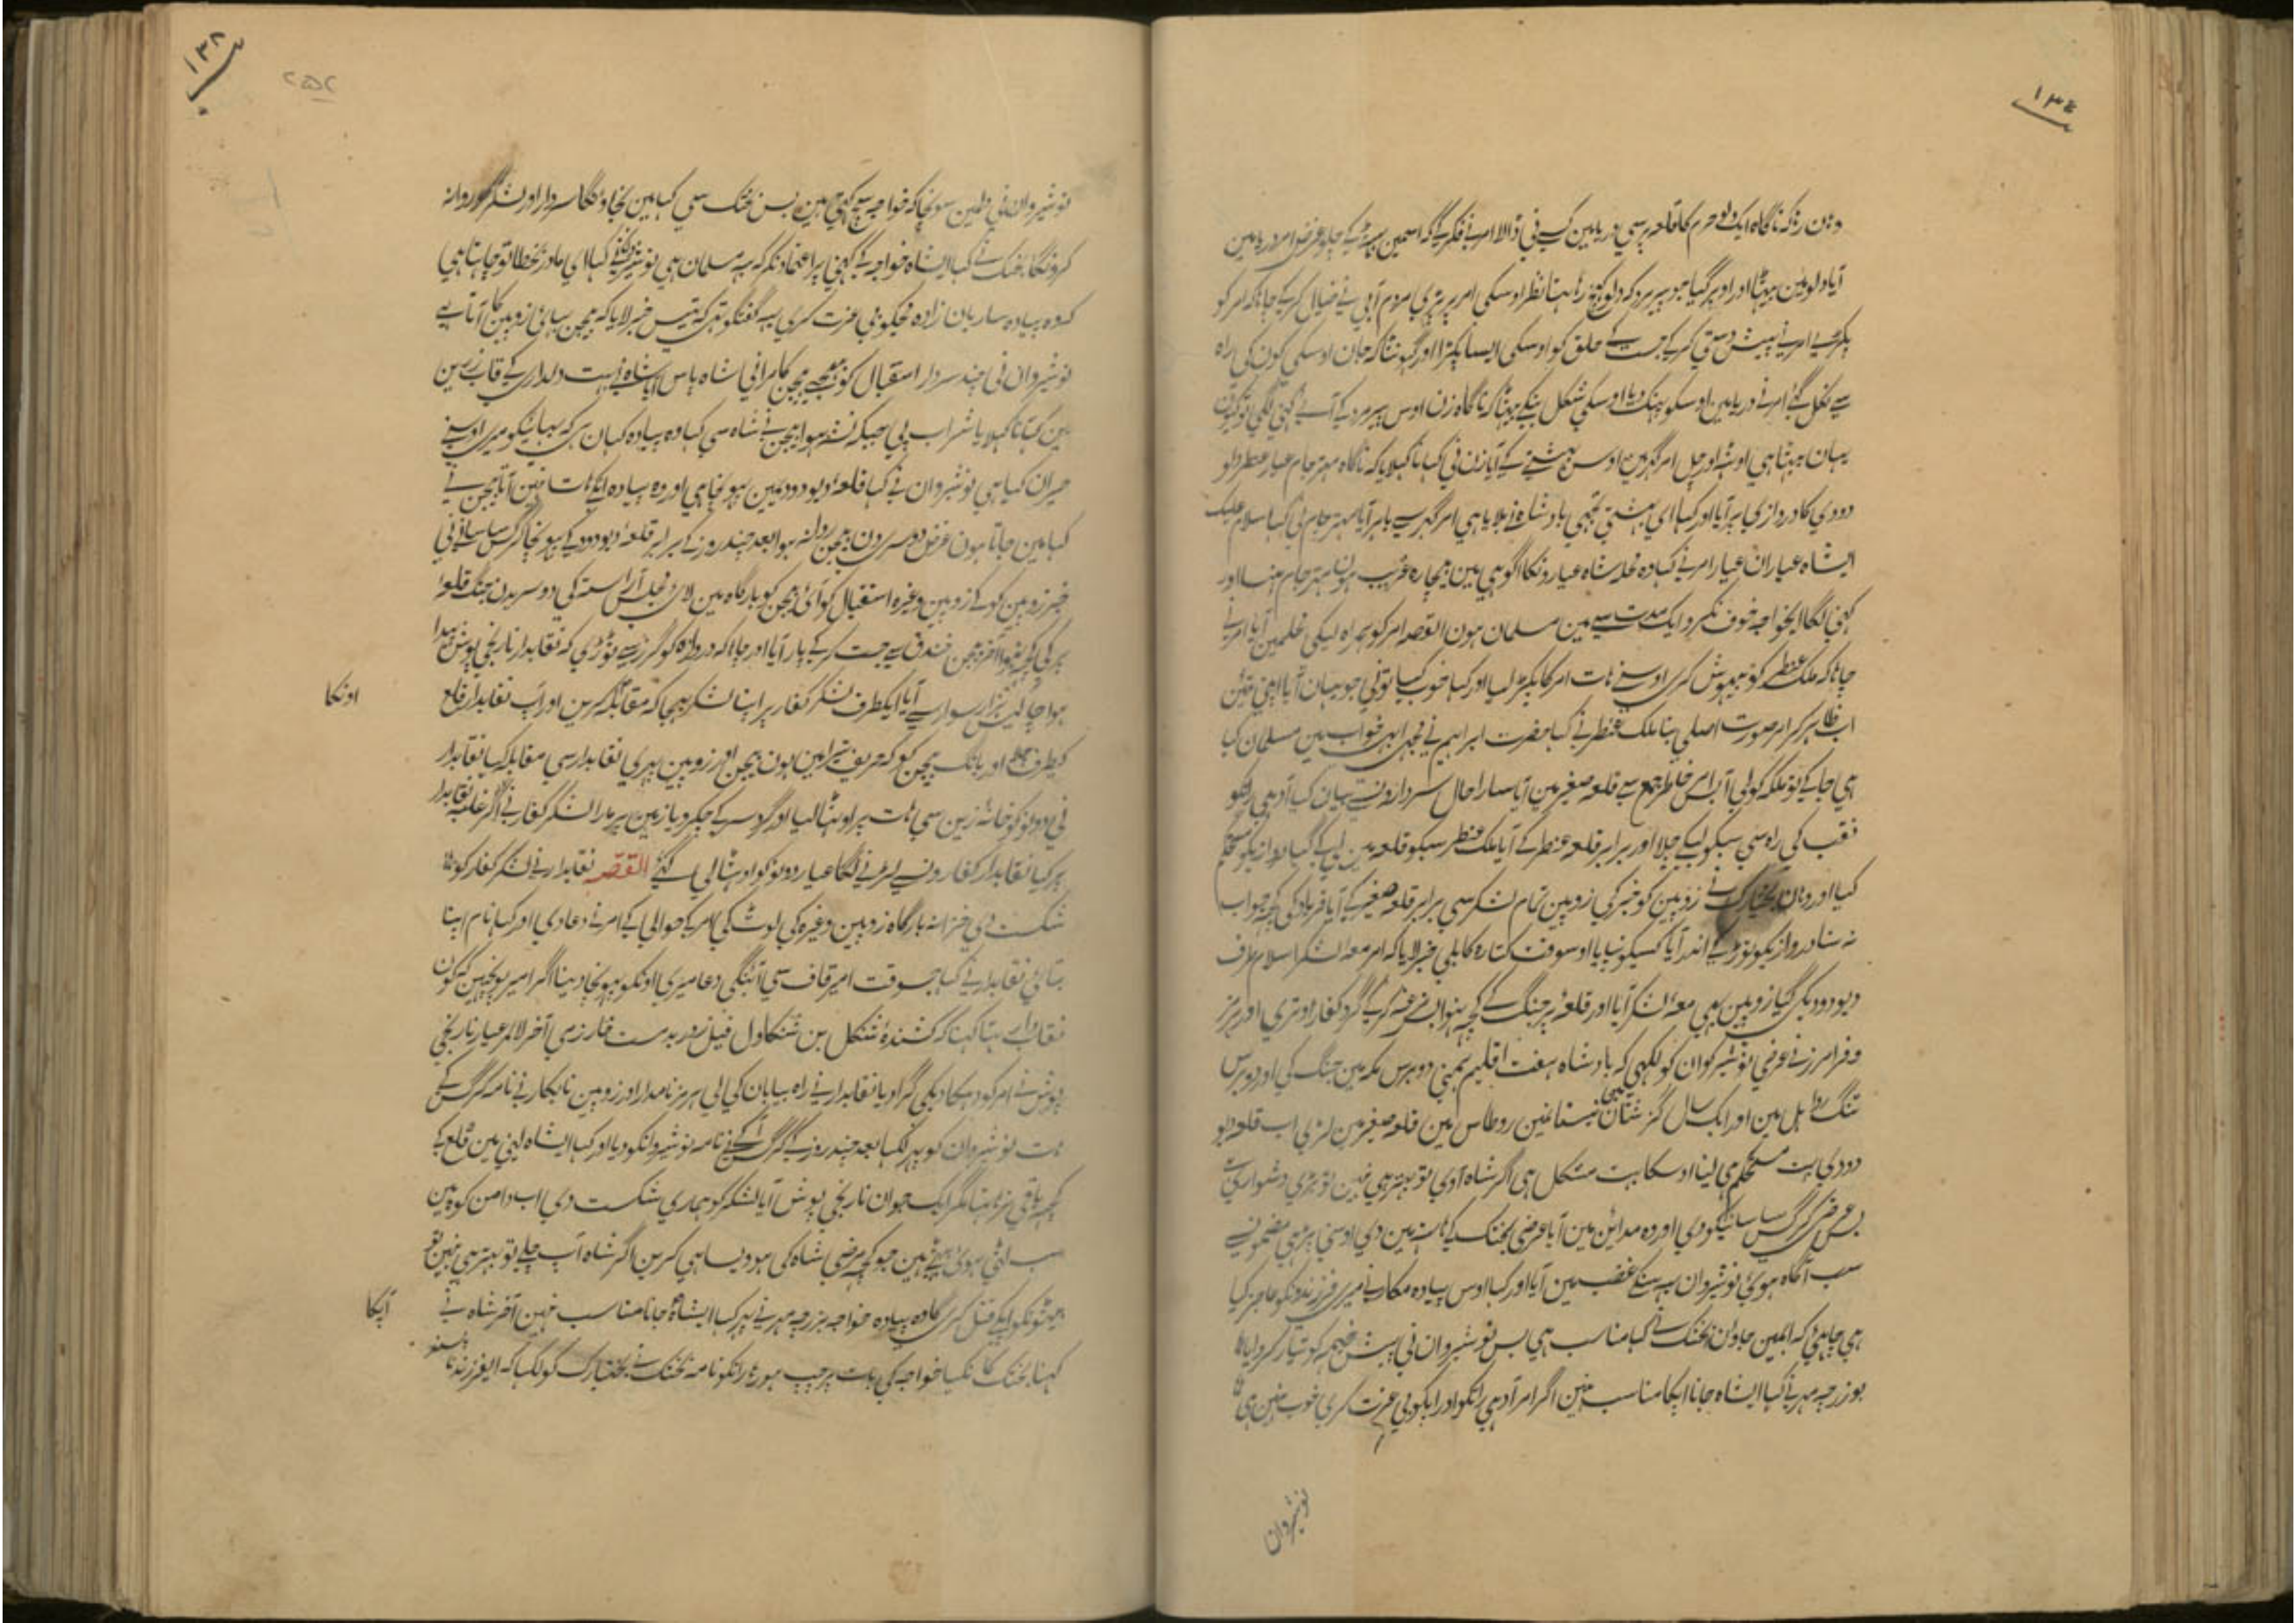 ۱۳۴
دہن رہ کہ ناگاہ ایک دلو جرم کا قلعہ پر سی دریا مین کسی نی ڈالا امر نے فکر کی کہ اسمین بیٹھہ کے چلو غرض امر دریا مین
آیا دلو مین بیٹھا اور اوپر گیا جو پیر مرد کہ دلو کہینچ رہا تہا نظر اوسکی امر پر پڑی مردم آبی نے خیال کر کے چاہا کہ امر کو
پکڑے امر نے پیش دستی کر کے جست کے حلق کو اوسکی ایسا پکڑا اور گہونٹا کہ جان اوسکی کون کی راہ
سے نکل گئے امر نے دریا مین اوسکو پہنک دیا اوسکی شکل بنکے بیٹھا کہ ناگاہ زن اوس پیر مرد کے آئے کہنی لگی تو کیون
یہان بیٹھا ہی اوٹہ اور چل امر گہر مین اوس بہشتے کے آیا زن نی کہانا کہلایا کہ ناگاہ مہتر جام عیار عنطر دیو
دودی کا دروازی پر آیا اور کہا ای بہشتی تجہی بادشاہ نے بلایا ہی امر گہر سے باہر آیا مہتر جام نی کہا سلام علیک
ایشاہ عیاران عیار امر نے کہا وہ خدا شاہ عیارونکا ہوگا ہی مین بیچارہ غریب ہون مہتر جام ہنسا اور
کہنی لگا ایخواجہ خوف نکرو ایک مدت سے مین مسلمان ہون القصہ امر کو ہمراہ لیکی محلمین آیا امر نے
چاہا کہ ملک عنطر کو بیہوش کری اوسنے ہات امر کا پکڑ لیا اور کہا خوب کیا تونی جو یہان آیا
اب ظاہر کر صورت اصلی بنا ملک عنطر نے کہا حضرت ابراہیم نے مجہی خواب مین مسلمان کیا
ہی جا کے تو ملکہ کو لی آ امر خاطر جمع سے قلعہ صغیر مین آیا سارا حال سردارونسے بیان کیا آدہی رات کو
نقب کی راہ سی سبکو لیکے چلا اور برابر قلعہ عنطر کے آیا ملک عنطر سبکو قلعہ مین لے گیا دروازیکو مستحکم
کیا اور وہان بختیارک نے زوپین کو خبر کی زوپین تمام لشکر سی برابر قلعہ صغیر کے آیا فریاد کی کچہ جواب
نہ سنا دروازیکو توڑ کے اندر آیا کسیکو نپایا اوسوقت کتارہ کابلی خبر لایا کہ امر معہ لشکر اسلام طرف
دیو دود کی گیا زوپین بہی معہ لشکر آیا اور قلعہ پر جنگ کے کچہ نہوا الغرض گرد کفار اوتری اور ہرمز
و فرامرز نے عرضی نوشیروان کو لکہی کہ بادشاہ ہفت اقلیم ہمنی دو برس مکہ مین جنگ کی اور دو برس
تنگ رواہل مین اور ایک سال گز شتان نیستا نمین روطاس مین قلعہ صغیر مین لڑی اب قلعہ دیو
دودی بہت مستحکم ہی لینا اوسکا بہت مشکل ہی اگر شاہ آوی تو بہتر ہی نہین تو بڑی دشواری ہے
بس عرضی گرگس ساسانیکو دی اور وہ مداین مین آیا عرضی بختک کے ہات مین دی اوسنی پڑہی مضمون سے
سب آگاہ ہوئی نوشیروان یہ سنکے غضب مین آیا اور کہا اوس پیادہ مکار نے میری فرزندونکو عاجز کیا
ہی چاہیے کہ مین جاون بختک نے کہا مناسب ہی بس نوشیروان نی پیش خیمہ کو تیار کروایا
بوزرجمہر نے کہا ایشاہ جانا آپکا مناسب نہین اگر امر آدہی رات کو اور آپکو بی عزت کری خوب نہین ہی
نوشیروان
۱۳۲
۲۵۲
نوشیروان نی دلمین سونچا کہ خواجہ سچ کہتی ہین بس بختک سی کہا مین نجاونگا سردار اور لشکر کو روانہ
کرونگا بختک نے کہا ایشاہ خواجہ کے کہنی پر اعتماد نکر کہ یہ مسلمان ہی نوشیروان نے کہا ای مادر بخطا تو چاہتا ہی
کہ وہ پیادہ ساربان زادہ مجکو بی عزت کری یہ گفتگو تہی کہ قیس خبر لایا کہ بیجن بہائی زوپین کا آتا ہے
نوشیروان نی چند سردار استقبال کو بہیجے بیجن کامرانی شاہ پاس آیا شاہ نے بہت دلداری کے قاب زرین
مین کہانا کہلایا شراب پی جبکہ نشہ ہوا بیجن نے شاہ سی کہا وہ پیادہ کہان ہی کہ بہائیکو میری اوسنے
حیران کیا ہی نوشیروان نے کہا قلعہ دیو دود مین پہونچا ہی اور وہ پیادہ ایکے ہات نہین آتا بیجن نے
کہا مین جاتا ہون غرض دوسری دن بیجن روانہ ہوا بعد چند روز کے برابر قلعہ دیو دود کے پہونچا گرگس ساسانی نی
خبر زوپین کو کے زوپین وغیرہ استقبال کو آئے بیجن کو بارگاہ مین لائے مجلس آراستہ کی دوسریدن جنگ قلعہ
پر کی کچہ نہوا آخر بیجن خندق سے جست کر کے پار آیا اور چاہا کہ دروازہ کو گرز سے توڑی کہ نقابدار نارنجی پوش پیدا
ہوا چالیس ہزار سوار سے آیا ایکطرف لشکر کفار پر اپنا لشکر بہیجا کہ مقابلہ کرین اور آپ نقابدار قلعہ
اونکا
کیطرف چلا اور بانگ بیجن کو کہ حریف تیرا مین ہون بیجن اور زوپین پہری نقابدار سی مقابلہ کیا نقابدار
نی دونو کو خانہ زین سی ہات پر اوٹہا لیا اور گرد سر کے چکر دیا زمین پر مارا لشکر کفار نے اگر غلبہ نقابدار
پر کیا نقابدار کفارونسے لڑنے لگا عیار دونو کو اوٹہا لی گئے القصہ نقابدار نے لشکر کفار کو
شکست دی خزانہ بارگاہ زوپین وغیرہ کی لوٹ کی امر کے حوالی کے امر نے دعا دی اور کہا نام اپنا
بتائی نقابدار نے کہا جسوقت امیر قاف سی آئینگی دعا میری اونکو پہونچا دینا اگر امیر پوچہین کہ کون
نقابدار ہے تہا کہنا کہ کشندہ شنکل بن شنکاول فیل زور بدست غازی آخر الامر عیار نارنجی
پوش نے امر کو دہکا دیکی گرا دیا نقابدار نے راہ بیابان کی لی ہرمز نامدار اور زوپین نابکار نے نامہ گرگس کے
ہات نوشیروان کو پہر لکہا بعد چند روز کے گرگس نے نامہ نوشیروانکو دیا اور کہا ایشاہ لینی مین قلعے کے
کچہ باقی نرہا تہا مگر ایک جوان نارنجی پوش آیا لشکر کو ہماری شکست دی اب دامن کوہ مین
سب لٹی ہوئی بیٹہے ہین جو کچہ مرضی شاہ کی ہو ویسا ہی کرین اگر شاہ آپ چلے تو بہتر ہی نہین تو
بیٹونکو آپکے قتل کری گا وہ پیادہ خواجہ بزرجمہر نے پہر کہا ایشاہ جانا مناسب نہین آخر شاہ نے
آپکا
کہنا بختک کا نکیا خواجہ کی بات پر چپ ہو رہا رات کو نامہ بختک نے بختیارک کو لکہا کہ ایفرزند